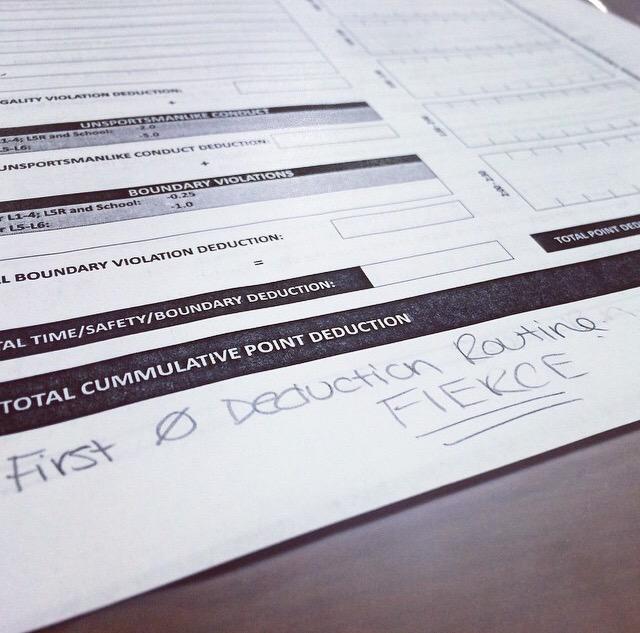 GALITY VIOLATION DEDUCTION:
+
UNSPORTSMANLIKE CONDUCT
L1-4; L5R and School: 2.0
5-L6: -5.0
UNSPORTSMANLIKE CONDUCT DEDUCTION:
+
BOUNDARY VIOLATIONS
r L1-4; L5R and School: -0.25
r L5-L6: -1.0
L BOUNDARY VIOLATION DEDUCTION:
=
TAL TIME/SAFETY/BOUNDARY DEDUCTION:
TOTAL POINT DED
TOTAL CUMMULATIVE POINT DEDUCTION
First Ø Deduction Routine.
FIERCE